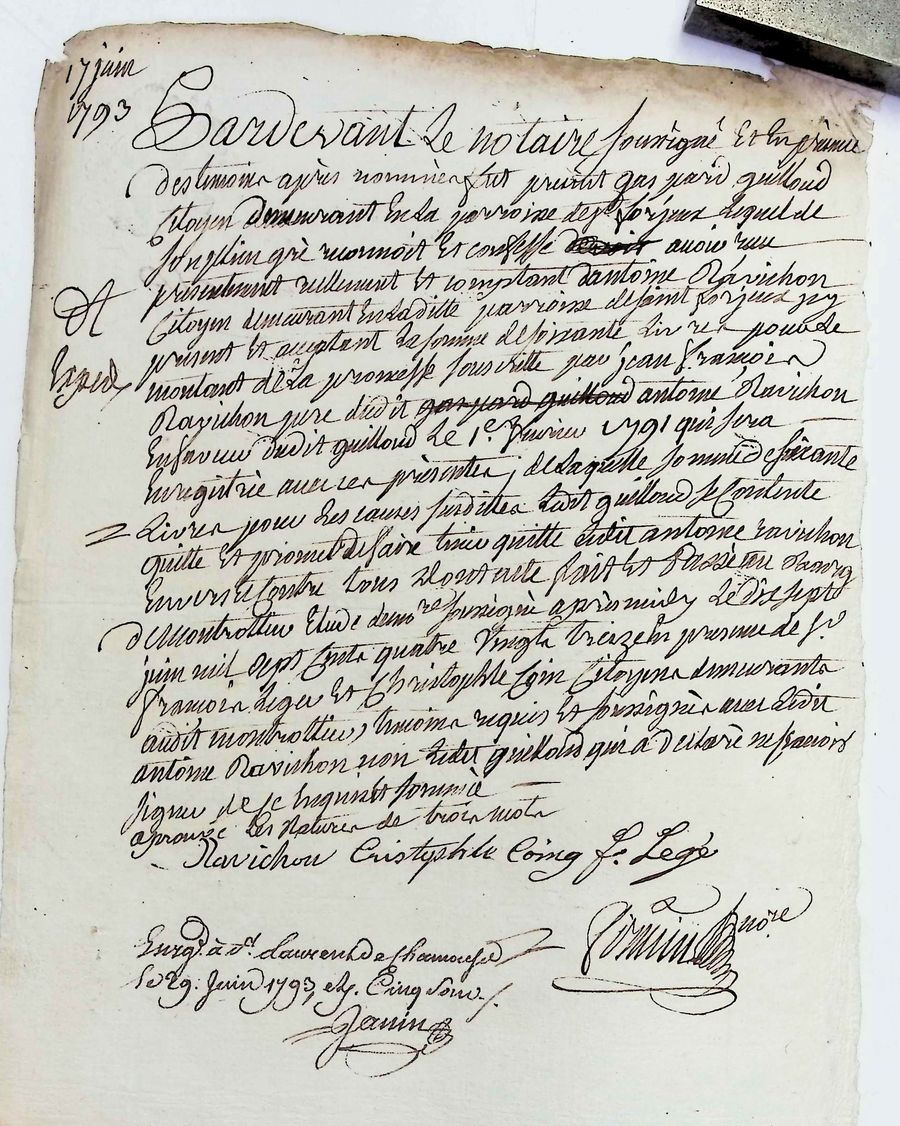 17 juin
1793
Pardevant Le notaire soussigné Et En présence
des temoins après nommés fut present gaspard guilloud
Citoyen demeurant En La parroisse de st forjeux Lequel de
son plein gré reconnoit Et confesse avoir reçu
présentement réellement Et comptant d'antoine Ravichon
Citoyen demeurant En Laditte parroisse de saint forjeux icy
présent Et acceptant La somme de soixante Livres pour Le
Expédié
montant de La promesse souscritte par jean françois
Ravichon pere dudit gaspard guilloud antoine Ravichon
En faveur dudit guilloud Le 1er fevrier 1791 qui sera
Enregistrée avec ces présentes; de Laquelle somme de soixante
Livres pour Les causes susdittes Ledit guilloud se Contente
quitte Et promet de faire tenir quitte Ledit antoine ravichon
Envers Et Contre tous dont acte fait Et Passé au Bourg
de Montrottier Etude de nore soussigné après midy Le dix sept
juin mil sept Cents quatre vingts treize En presence de sr
françois Leger Et Christophle Coin Citoyens demeurants
audit montrottier, temoins requis Et soussignés avec Ledit
antoine Ravichon non Ledit guilloud qui a declaré ne savoir
signer de ce Enquis Et sommé
aprouvé Les ratures de trois mots
Ravichon Cristophle Coing fs Legé
nore
Enrgé à St Laurent de Chamousset
le 29. Juin 1793, Cinq sous.
Janin